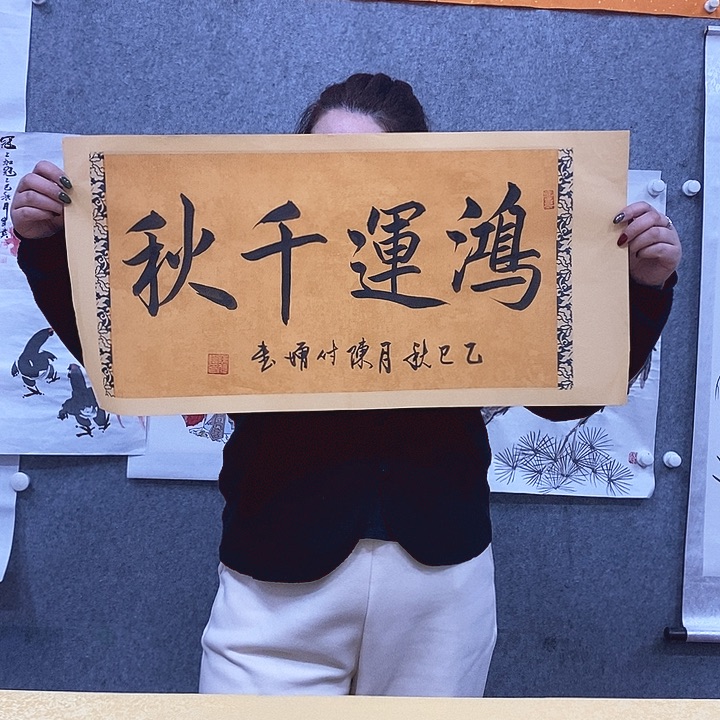 鴻運千秋
乙巳秋月陳付書
冠